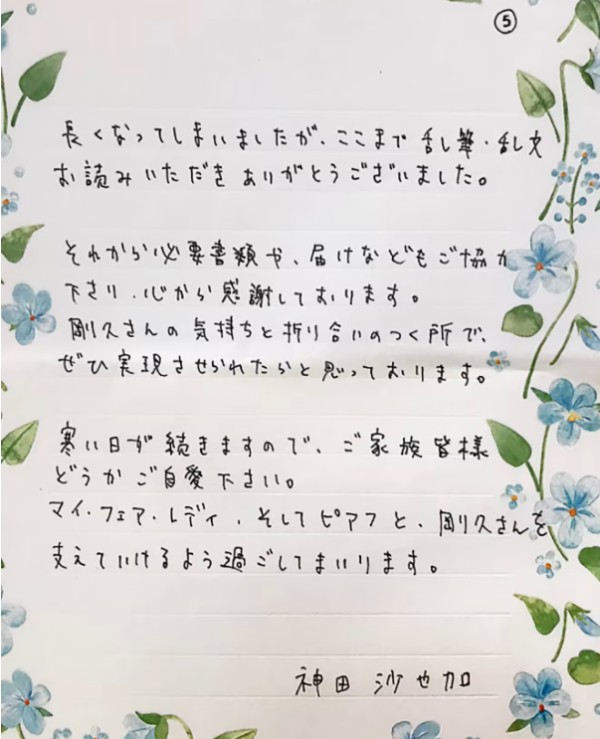 ⑤
長くなってしまいましたが、ここまで乱筆・乱文
お読みいただきありがとうございました。
それから必要書類や、届けなどもご協力
下さり、心から感謝しております。
剛久さんの気持ちと折り合いのつく所で、
ぜひ実現させられたらと思っております。
寒い日が続きますので、ご家族皆様
どうかご自愛下さい。
マイ・フェア・レディ、そしてピアフと、剛久さんを
支えていけるよう過ごしてまいります。
神田 沙也加